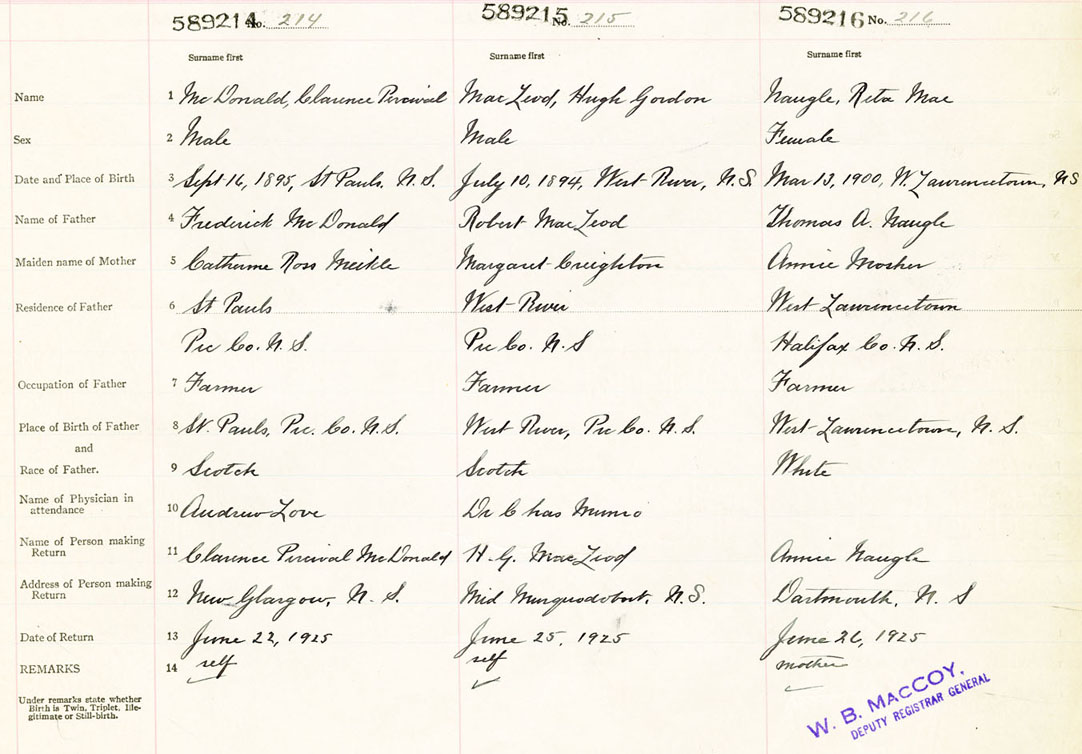 589214 No. 214 589215 No. 215 589216 No. 216
Surname first Surname first Surname first
Name 1 McDonald, Clarence Percival MacLeod, Hugh Gordon Naugle, Reta Mae
Sex 2 Male Male Female
Date and Place of Birth 3 Sept 16, 1895, St Pauls. N.S. July 10, 1894, West River, N.S. Mar 13, 1900, W. Lawrencetown, NS
Name of Father 4 Frederick McDonald Robert MacLeod Thomas A. Naugle
Maiden name of Mother 5 Catherine Ross Meikle Margaret Creighton Annie Mosher
Residence of Father 6 St Pauls West River West Lawrencetown
Pic Co. N.S. Pic Co. N.S Halifax Co. N.S.
Occupation of Father 7 Farmer Farmer Farmer
Place of Birth of Father 8 St. Pauls, Pic. Co. N.S. West River, Pic Co. N.S. West Lawrencetown, N.S.
and
Race of Father. 9 Scotch Scotch White
Name of Physician in
attendance 10 Andrew Love Dr Chas Munro
Name of Person making
Return 11 Clarence Percival McDonald H.G. MacLeod Annie Naugle
Address of Person making
Return 12 New Glasgow, N.S. Mid Musquodobort, N.S. Dartmouth, N.S
Date of Return 13 June 22, 1925 June 25, 1925 June 26, 1925
REMARKS 14 self self mother
Under remarks state whether
Birth is Twin, Triplet, Ille-
gitimate or Still-birth.
W. B. MACCOY,
DEPUTY REGISTRAR GENERAL